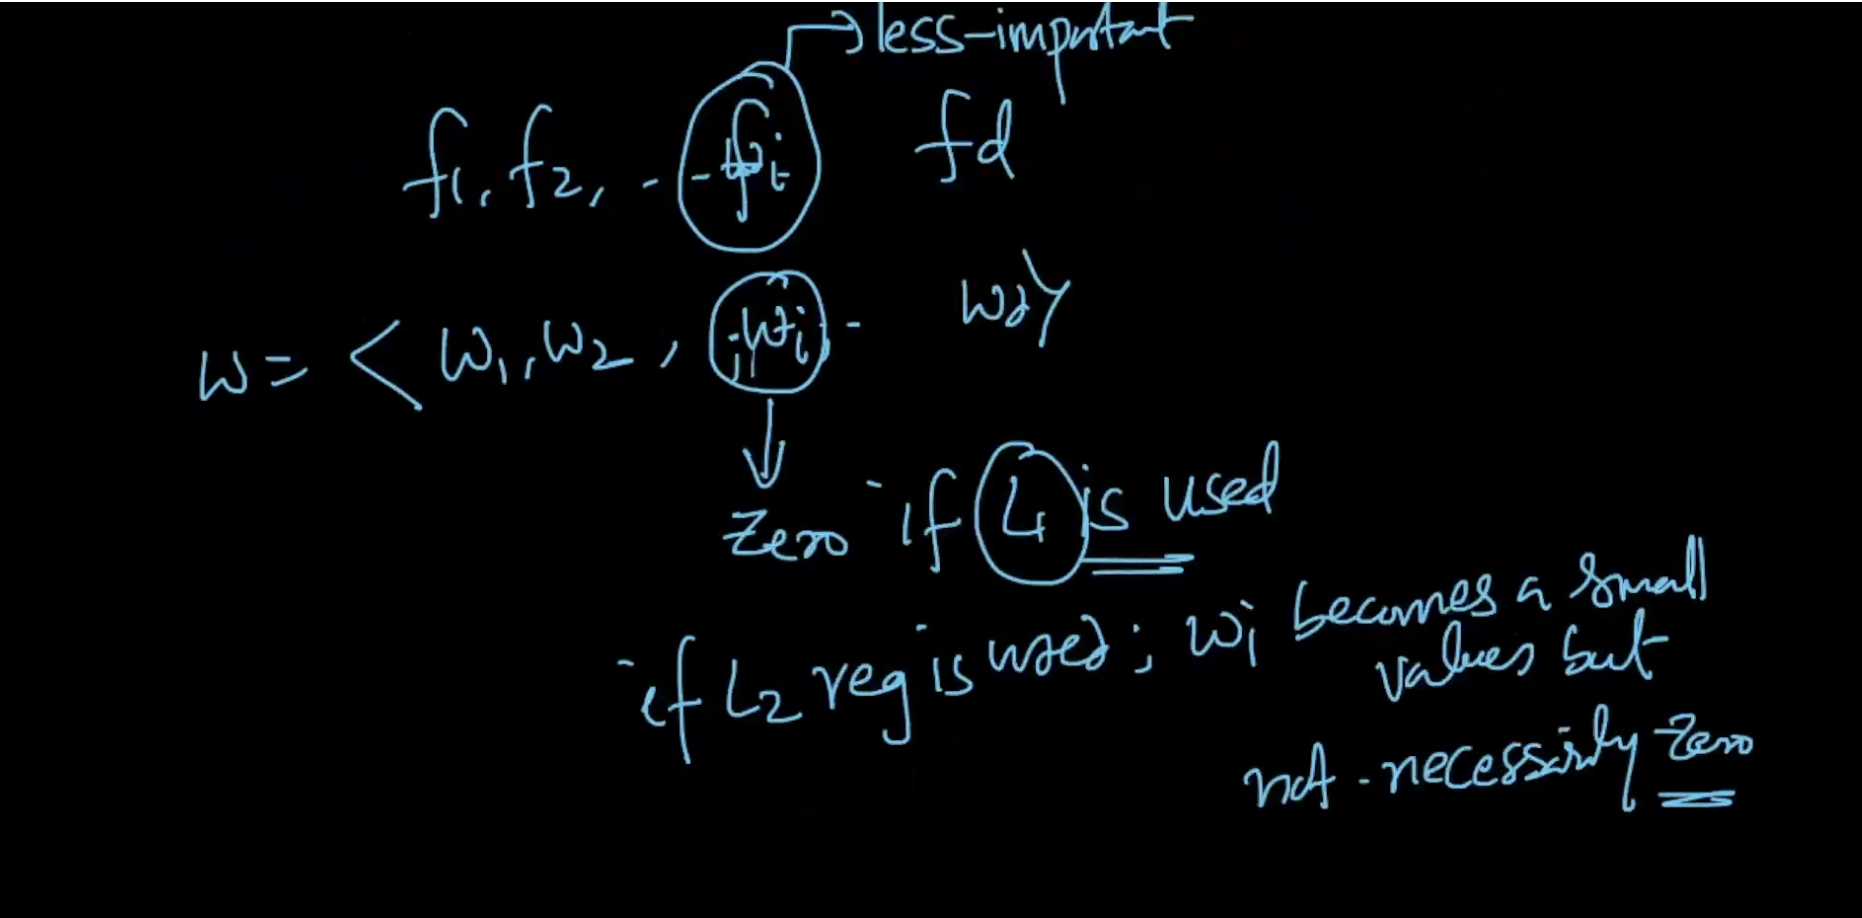 → less-important
f1, f2, - - fi fd
w = < w1, w2, , wi, - wd >
↓
Zero if L1 is used
if L2 reg is used; wi becomes a small
values but
not-necessarily zero